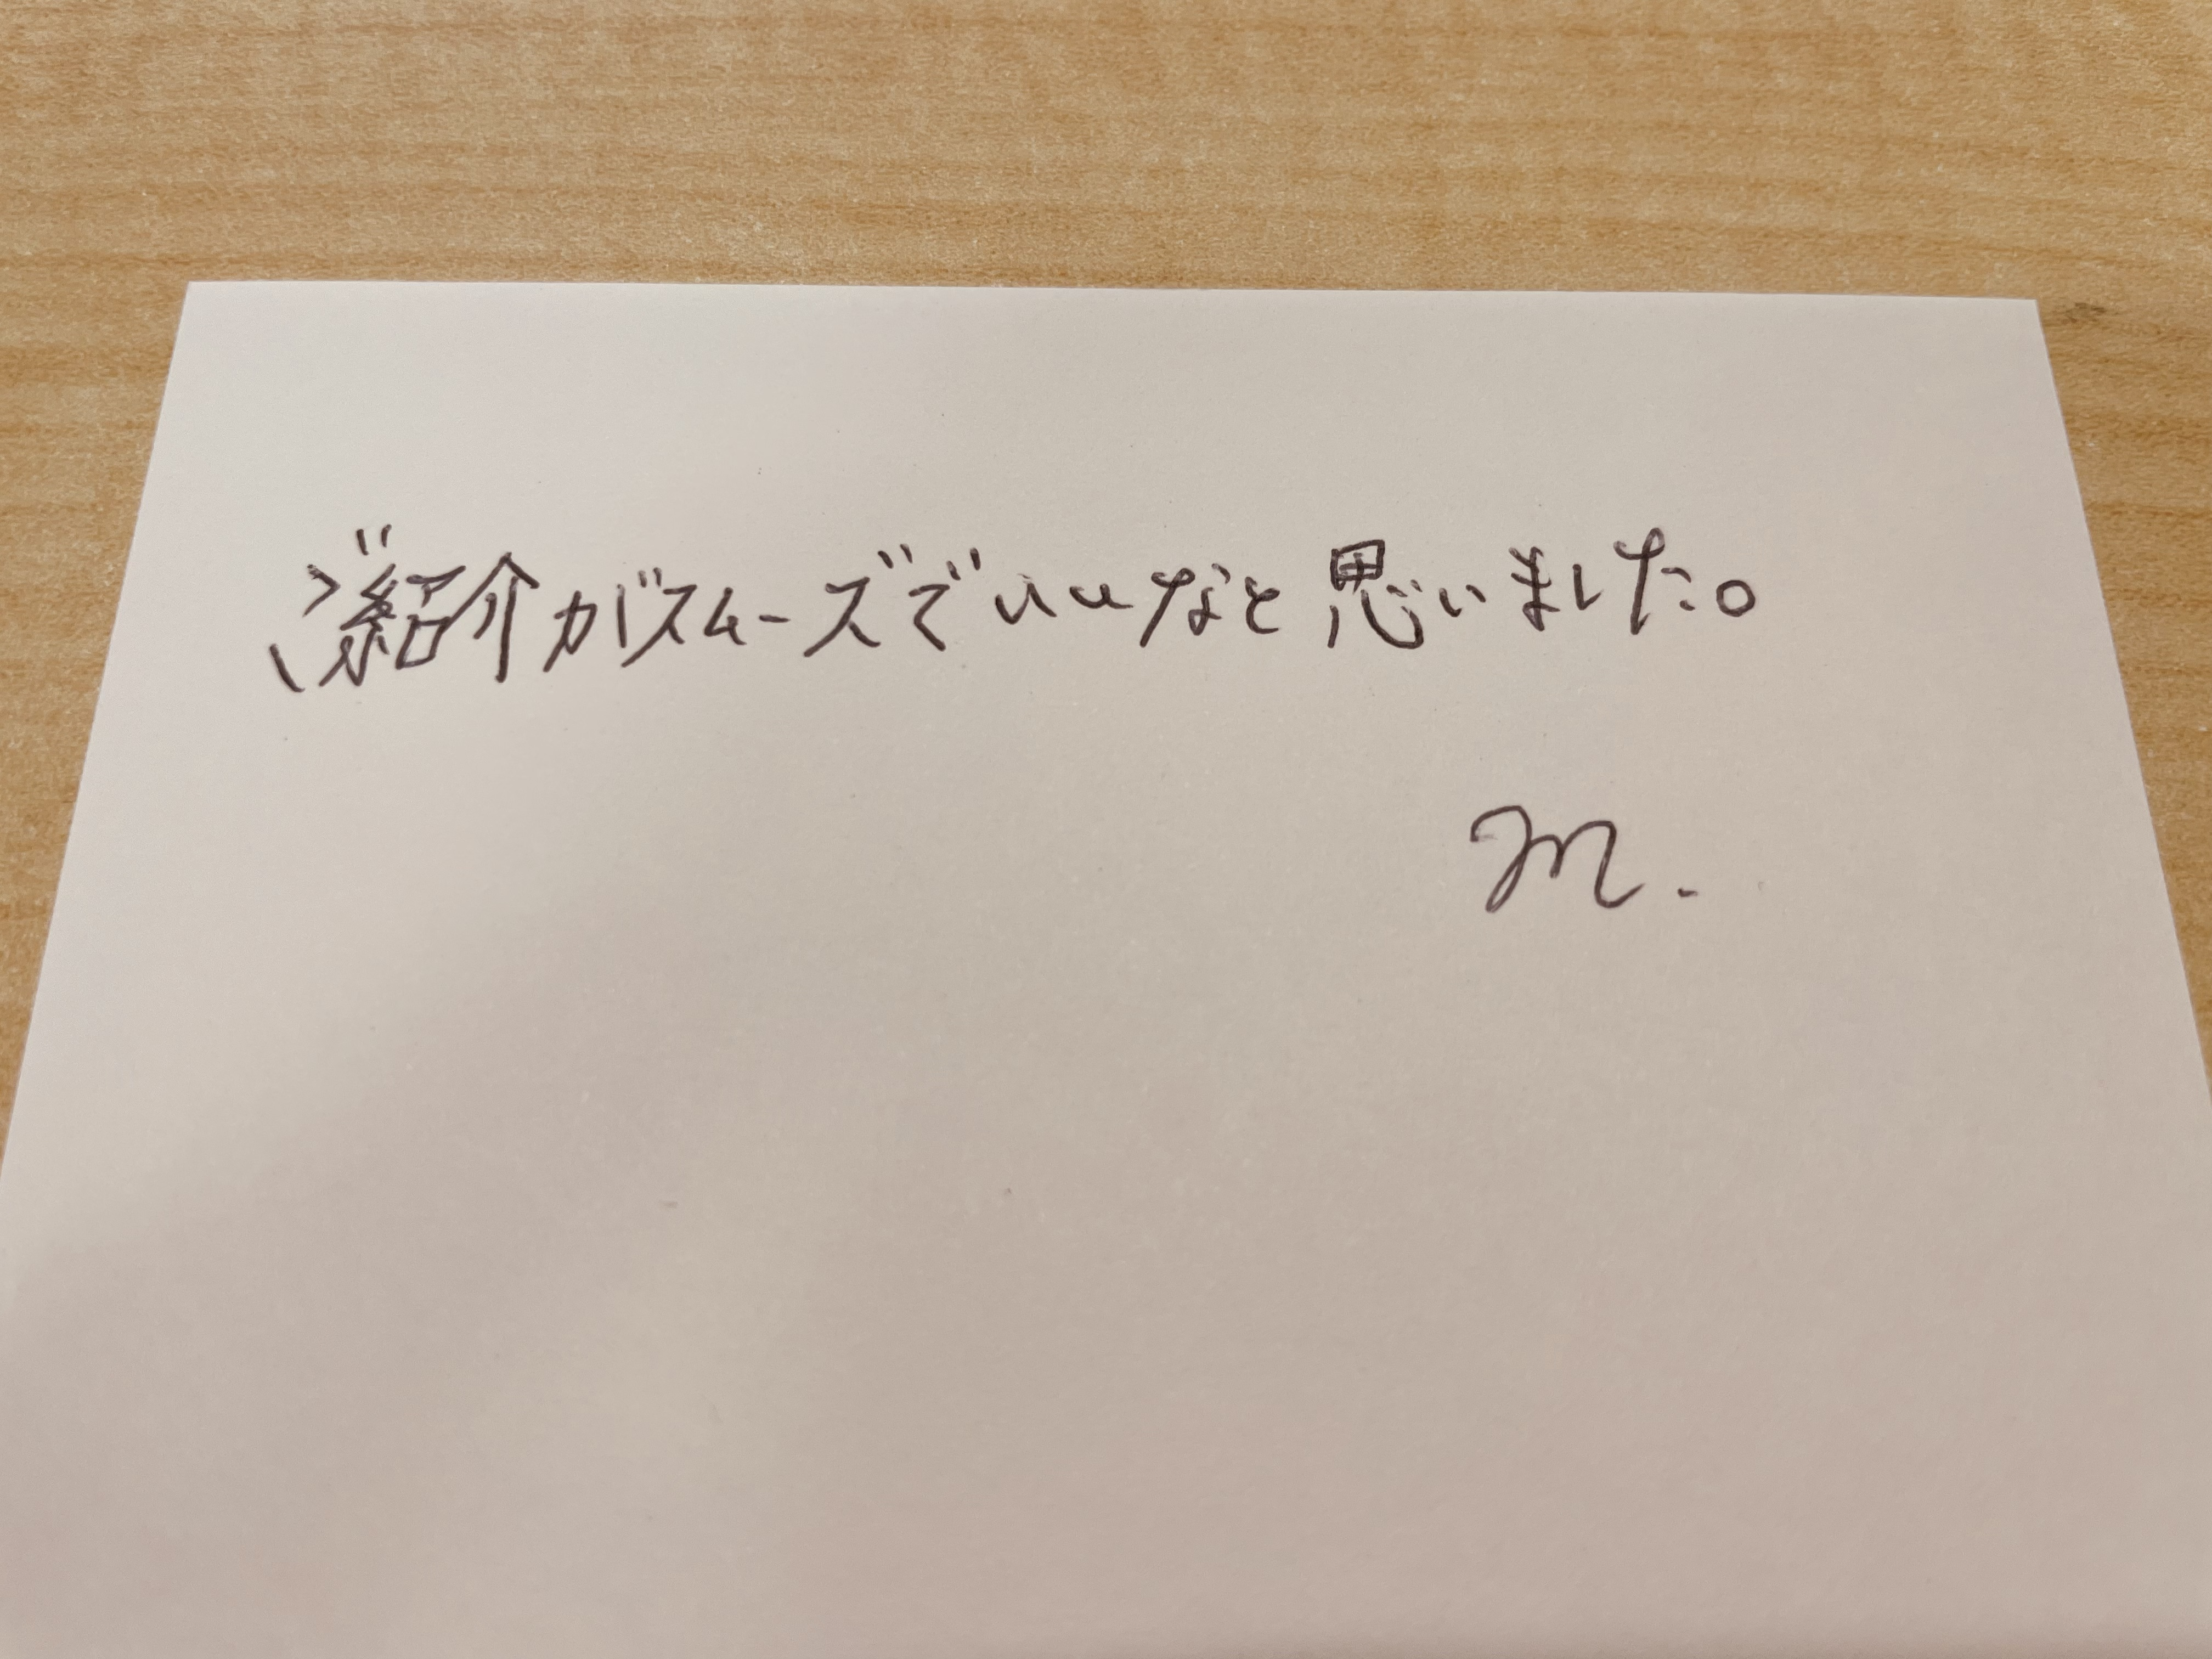 ご紹介がスムーズでいいなと思いました。
M.